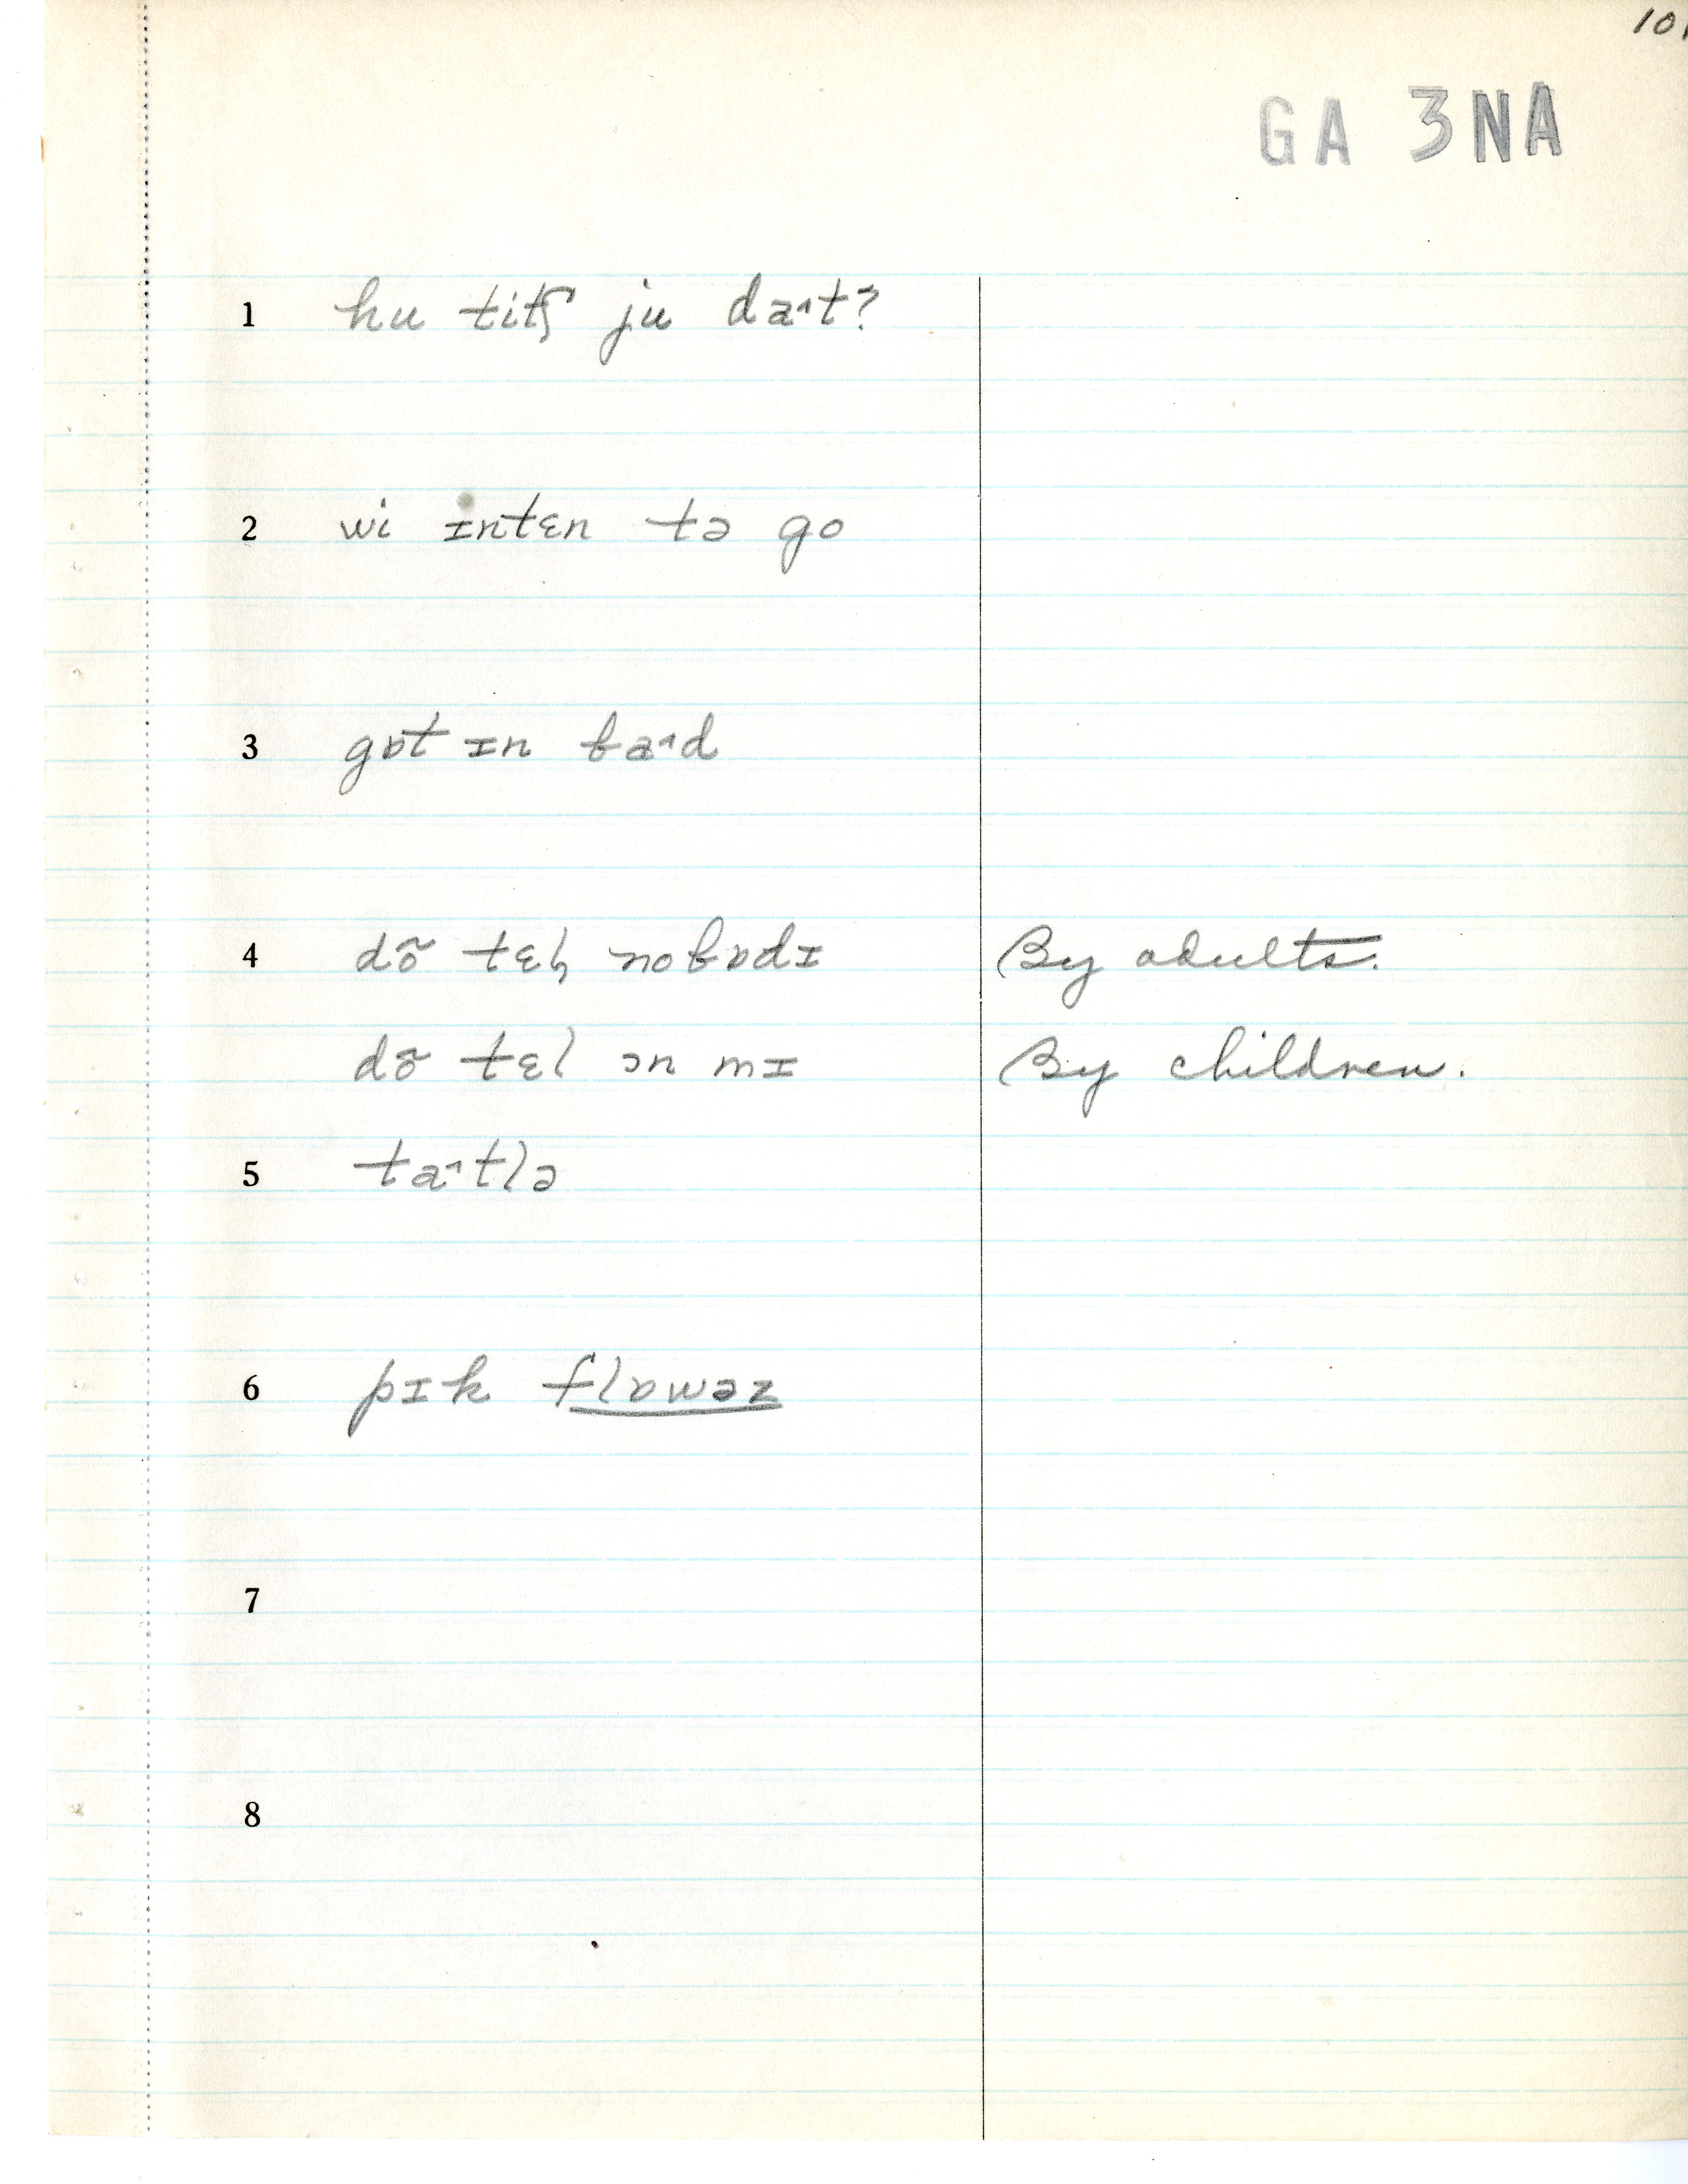 101
GA 3NA
1 hu titʃ ju da˄t?
2 wi ɪntɛn tə go
3 gɒt ɪn ba˄d
4 dõ tɛɫ nobɒdɪ By adults.
dõ tɛl ɔn mɪ By children.
5 ta˄tlə
6 pɪk flɒwəz
7
8